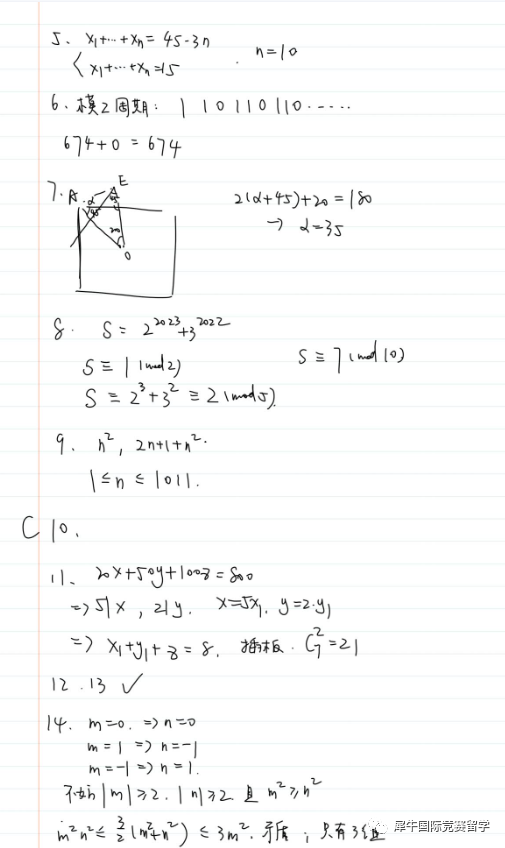 5、 x₁+…+xₙ = 45-3n
{ x₁+…+xₙ=15 . n=10
6、模2周期： 1 1 0 1 1 0 1 1 0 ……
674+0 = 674
7. A α E
45
20
O
2(α+45)+20=180
→ α=35
8. S = 2^2023+3^2022
S ≡ 1 (mod 2)
S ≡ 7 (mod 10)
S ≡ 2^3+3^2 ≡ 2 (mod 5).
9. n², 2n+1+n².
1 ≤ n ≤ 1011.
C 10.
11. 20x+50y+100z=800
=> 5|x , 2|y. x=5x₁, y=2·y₁
=> x₁+y₁+z=8. 插板. C₇²=21
12 .13 ✓
14. m=0. => n=0
m=1 => n=-1
m=-1 => n=1.
不妨|m|≥2. |n|≥2 且 m²≥n²
m²n²≤ 3/2 (m²+n²) ≤ 3m². 矛盾 ; 只有3组
犀牛国际竞赛留学